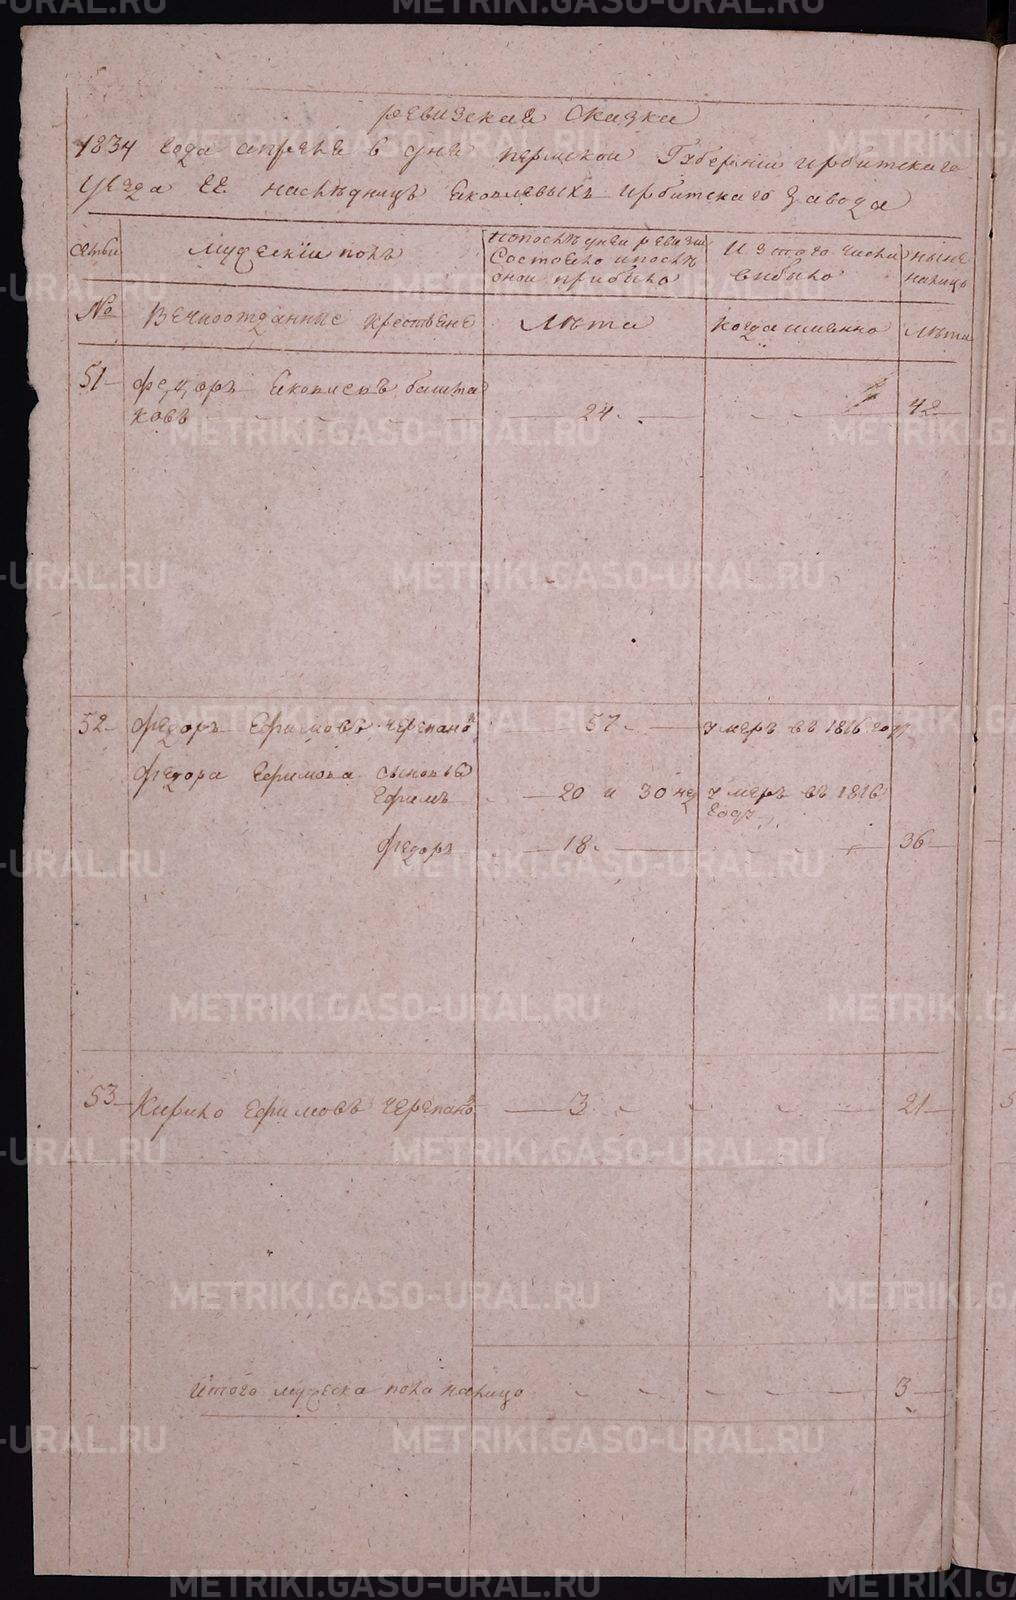 METRIKI.GASO-URAL.RU
ревизская Сказка
1834 года апреля в дня пермской Губернии ирбитского
уезда ЕЕ наслѣдницъ Яковлевыхъ ирбитского Завода
мужескiи полъ
попослѣдней ревизии
Состояло ипослѣ
оной прибыло
Из того числа
выбыло
нынѣ
налицо
№
Вечноотданные крестьяне
Лѣта
Когда именно
Лѣта
51
Федоръ Яковлевъ башма
ковъ
24
42
52
Федоръ Ефимовъ черепано
57
умеръ въ 1816 году
Федора Ефимова сыновья
Ефимъ
20 и 30 не
умеръ въ 1816
году
Федоръ
18
36
53
Кирило Ефимовъ черепано
3
21
Итого мужеска пола налицо
3